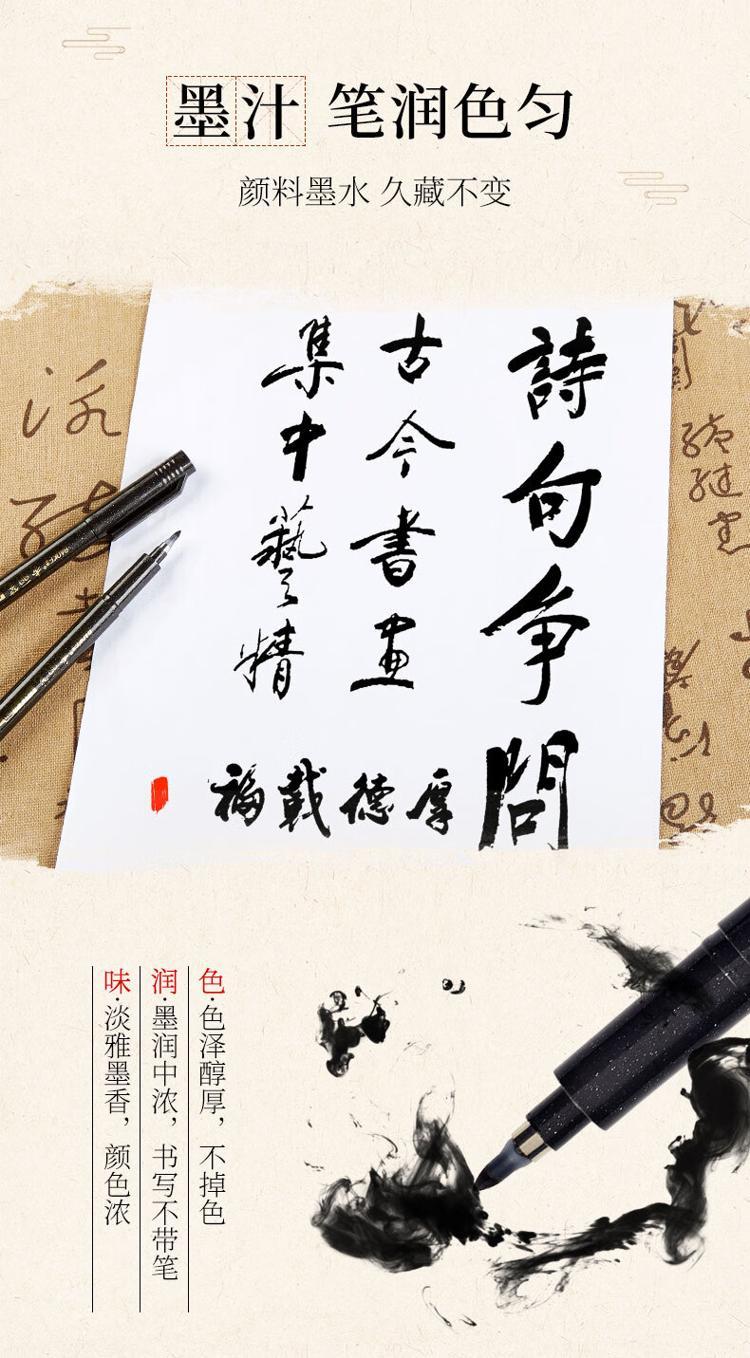 墨汁 笔润色匀
颜料墨水 久藏不变
詩句争問
古今書画
集中藝精
厚德載福
色·色泽醇厚，不掉色
润·墨润中浓，书写不带笔
味·淡雅墨香，颜色浓